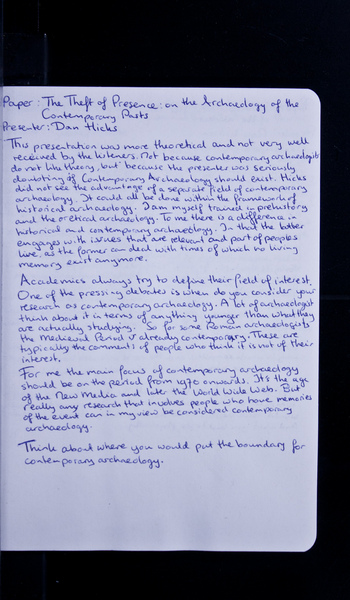 Paper: The Theft of Presence: on the Archaeology of the
Contemporary Pasts
Presenter: Dan Hicks
This presentation was more theoretical and not very well
received by the listeners. Not because contemporary archaeologists
do not like theory, but because the presenter was seriously
doubting if Contemporary Archaeology should exist. Hicks
did not see the advantage of a separate field of contemporary
archaeology. It could all be done within the framework of
historical archaeology. I am myself trained in prehistory
and theoretical archaeology. To me there is a difference in
historical and contemporary archaeology. In that the latter
engages with issues that are relevant and part of peoples
lives, as the former can deal with times of which no living
memory exist anymore.
Academics always try to define their field of interest.
One of the pressing debates is when do you consider your
research as contemporary archaeology. A lot of archaeologist
think about it in terms of anything younger than what they
are actually studying. So for some Roman archaeologists
the Medieval Period is already contemporary. These are
typically the comments of people who think it is not of their
interest.
For me the main focus of contemporary archaeology
should be on the period from 1970 onwards. It's the age
of the New Media and later the World Wide Web. But
really any research that involves people who have memories
of the event can in my view be considered contemporary
archaeology.
Think about where you would put the boundary for
contemporary archaeology.